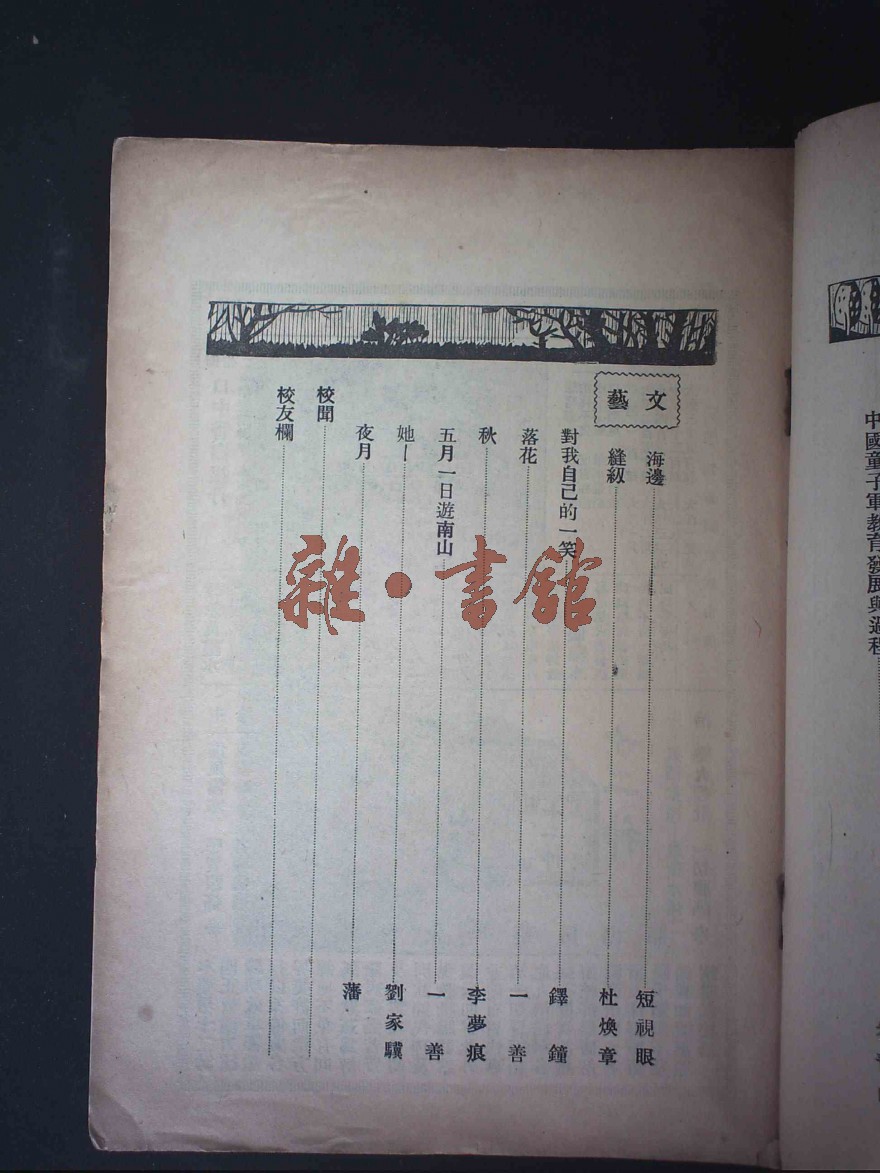 文藝
海邊 短視眼
縫紉 杜煥章
對我自己的一笑 鐸鐘
落花 一善
秋 李夢痕
五月一日遊南山 一善
她— 劉家驥
夜月 藩
校聞
校友欄
雜·書館
中國童子軍教育發展與過程